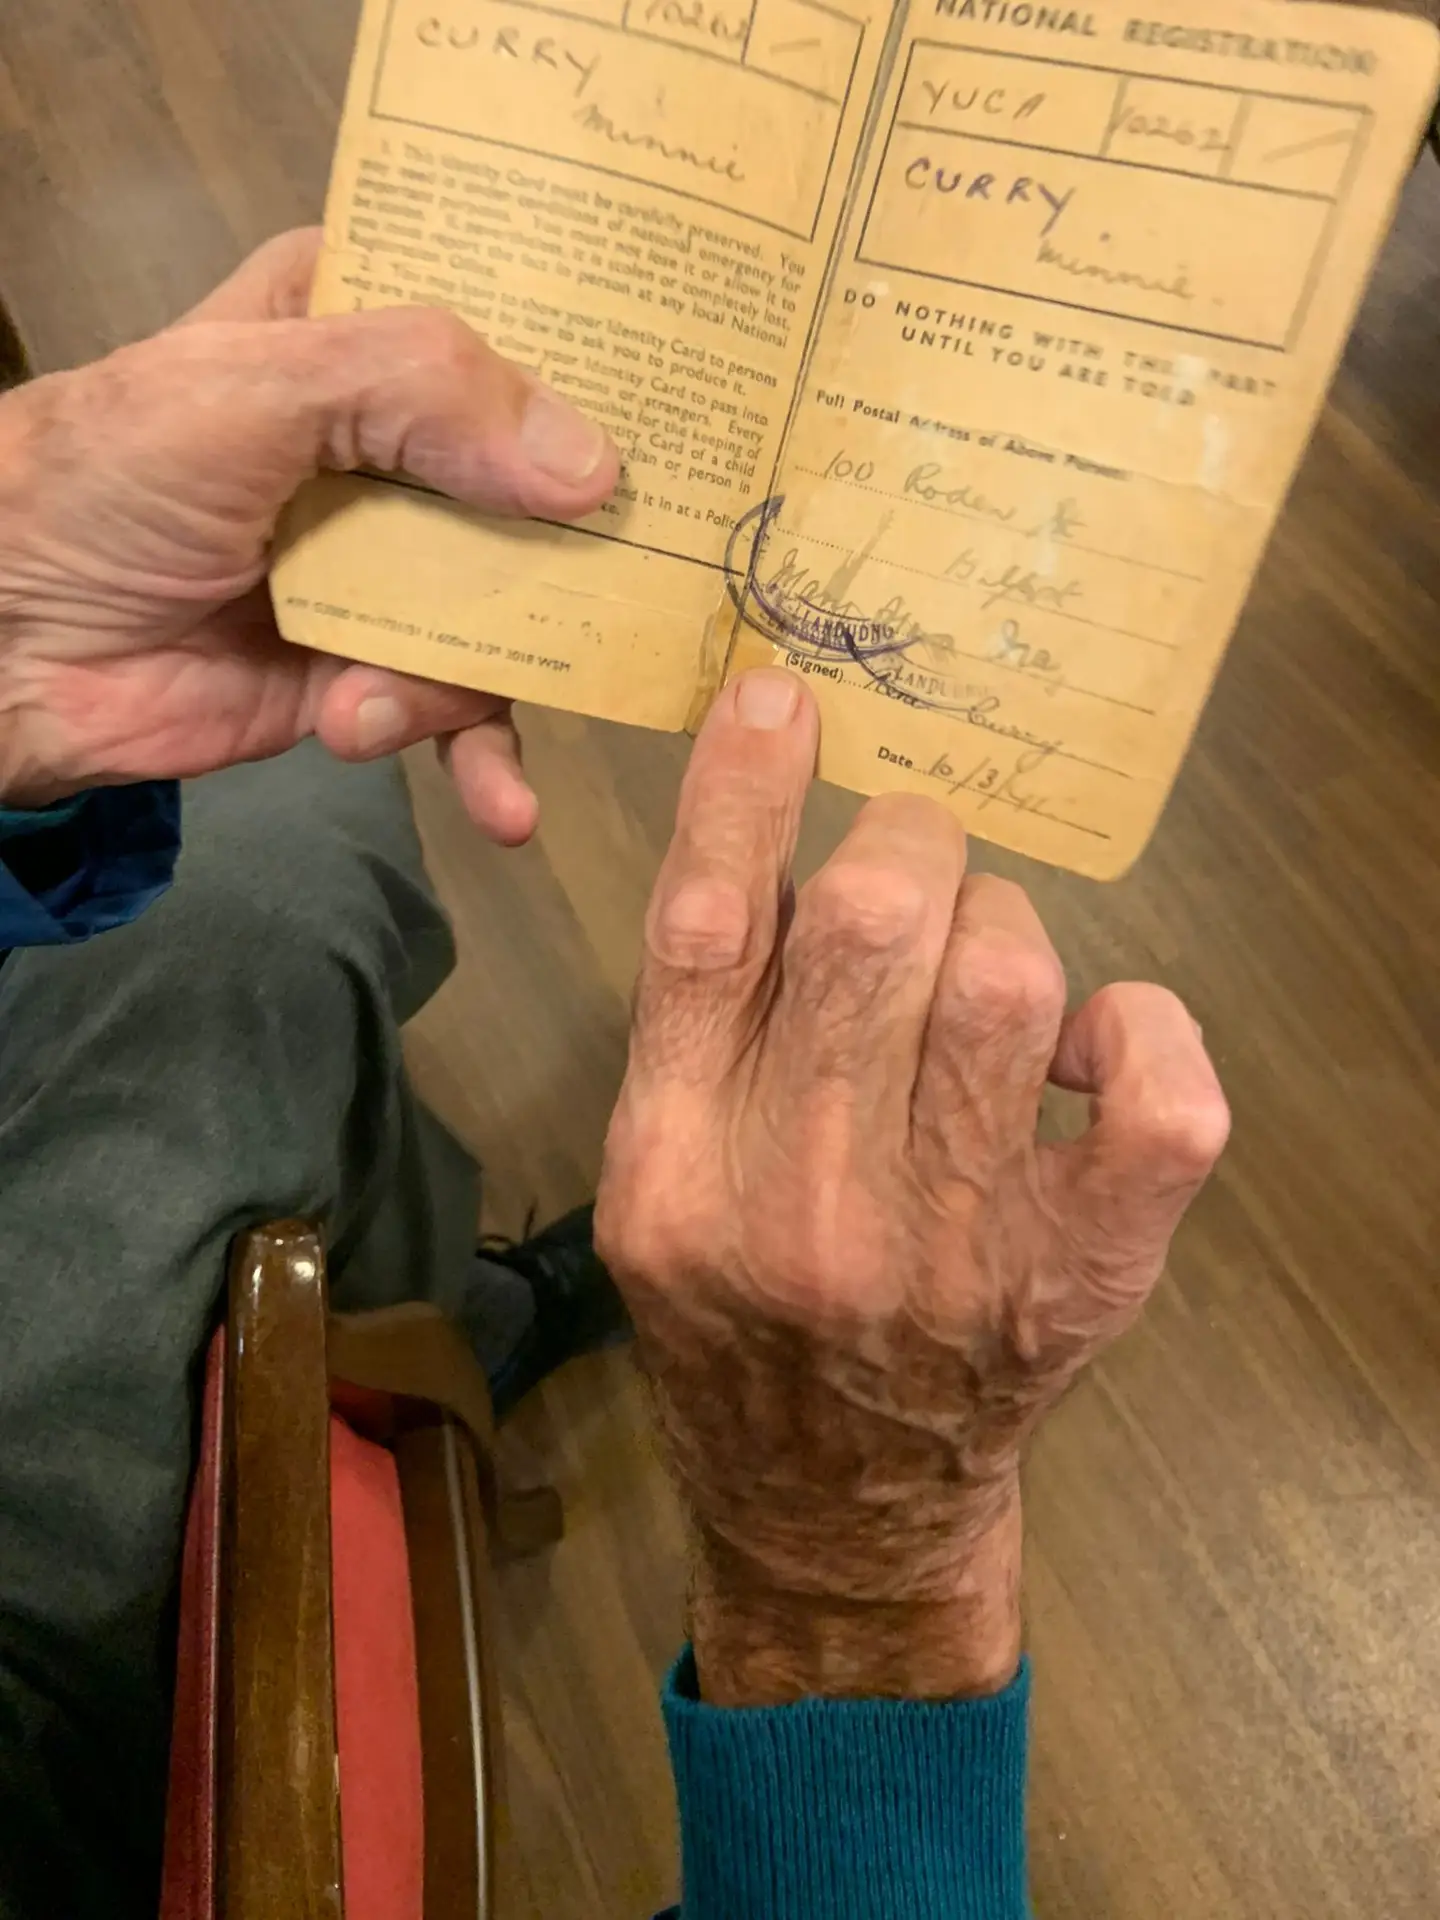 10262 —
CURRY
Minnie
1. This Identity Card must be carefully preserved. You
may need is under conditions of national emergency for
important purposes. You must not lose it or allow it to
be stolen. If, nevertheless, it is stolen or completely lost,
you must report the fact in person at any local National
Registration Office.
2. You may have to show your Identity Card to persons
who are authorised by law to ask you to produce it.
3. allow your Identity Card to pass into
persons or strangers. Every
responsible for the keeping of
Identity Card of a child
guardian or person in
send it in at a Police
NATIONAL REGISTRATION
YUCA 10262 —
CURRY.
Minnie.
DO NOTHING WITH THIS PART
UNTIL YOU ARE TOLD
Full Postal Address of Above Person:
100 Roden St
Belfast
LLANDUDNO
LLANDUDNO
(Signed) Curry
Date 10/3/41